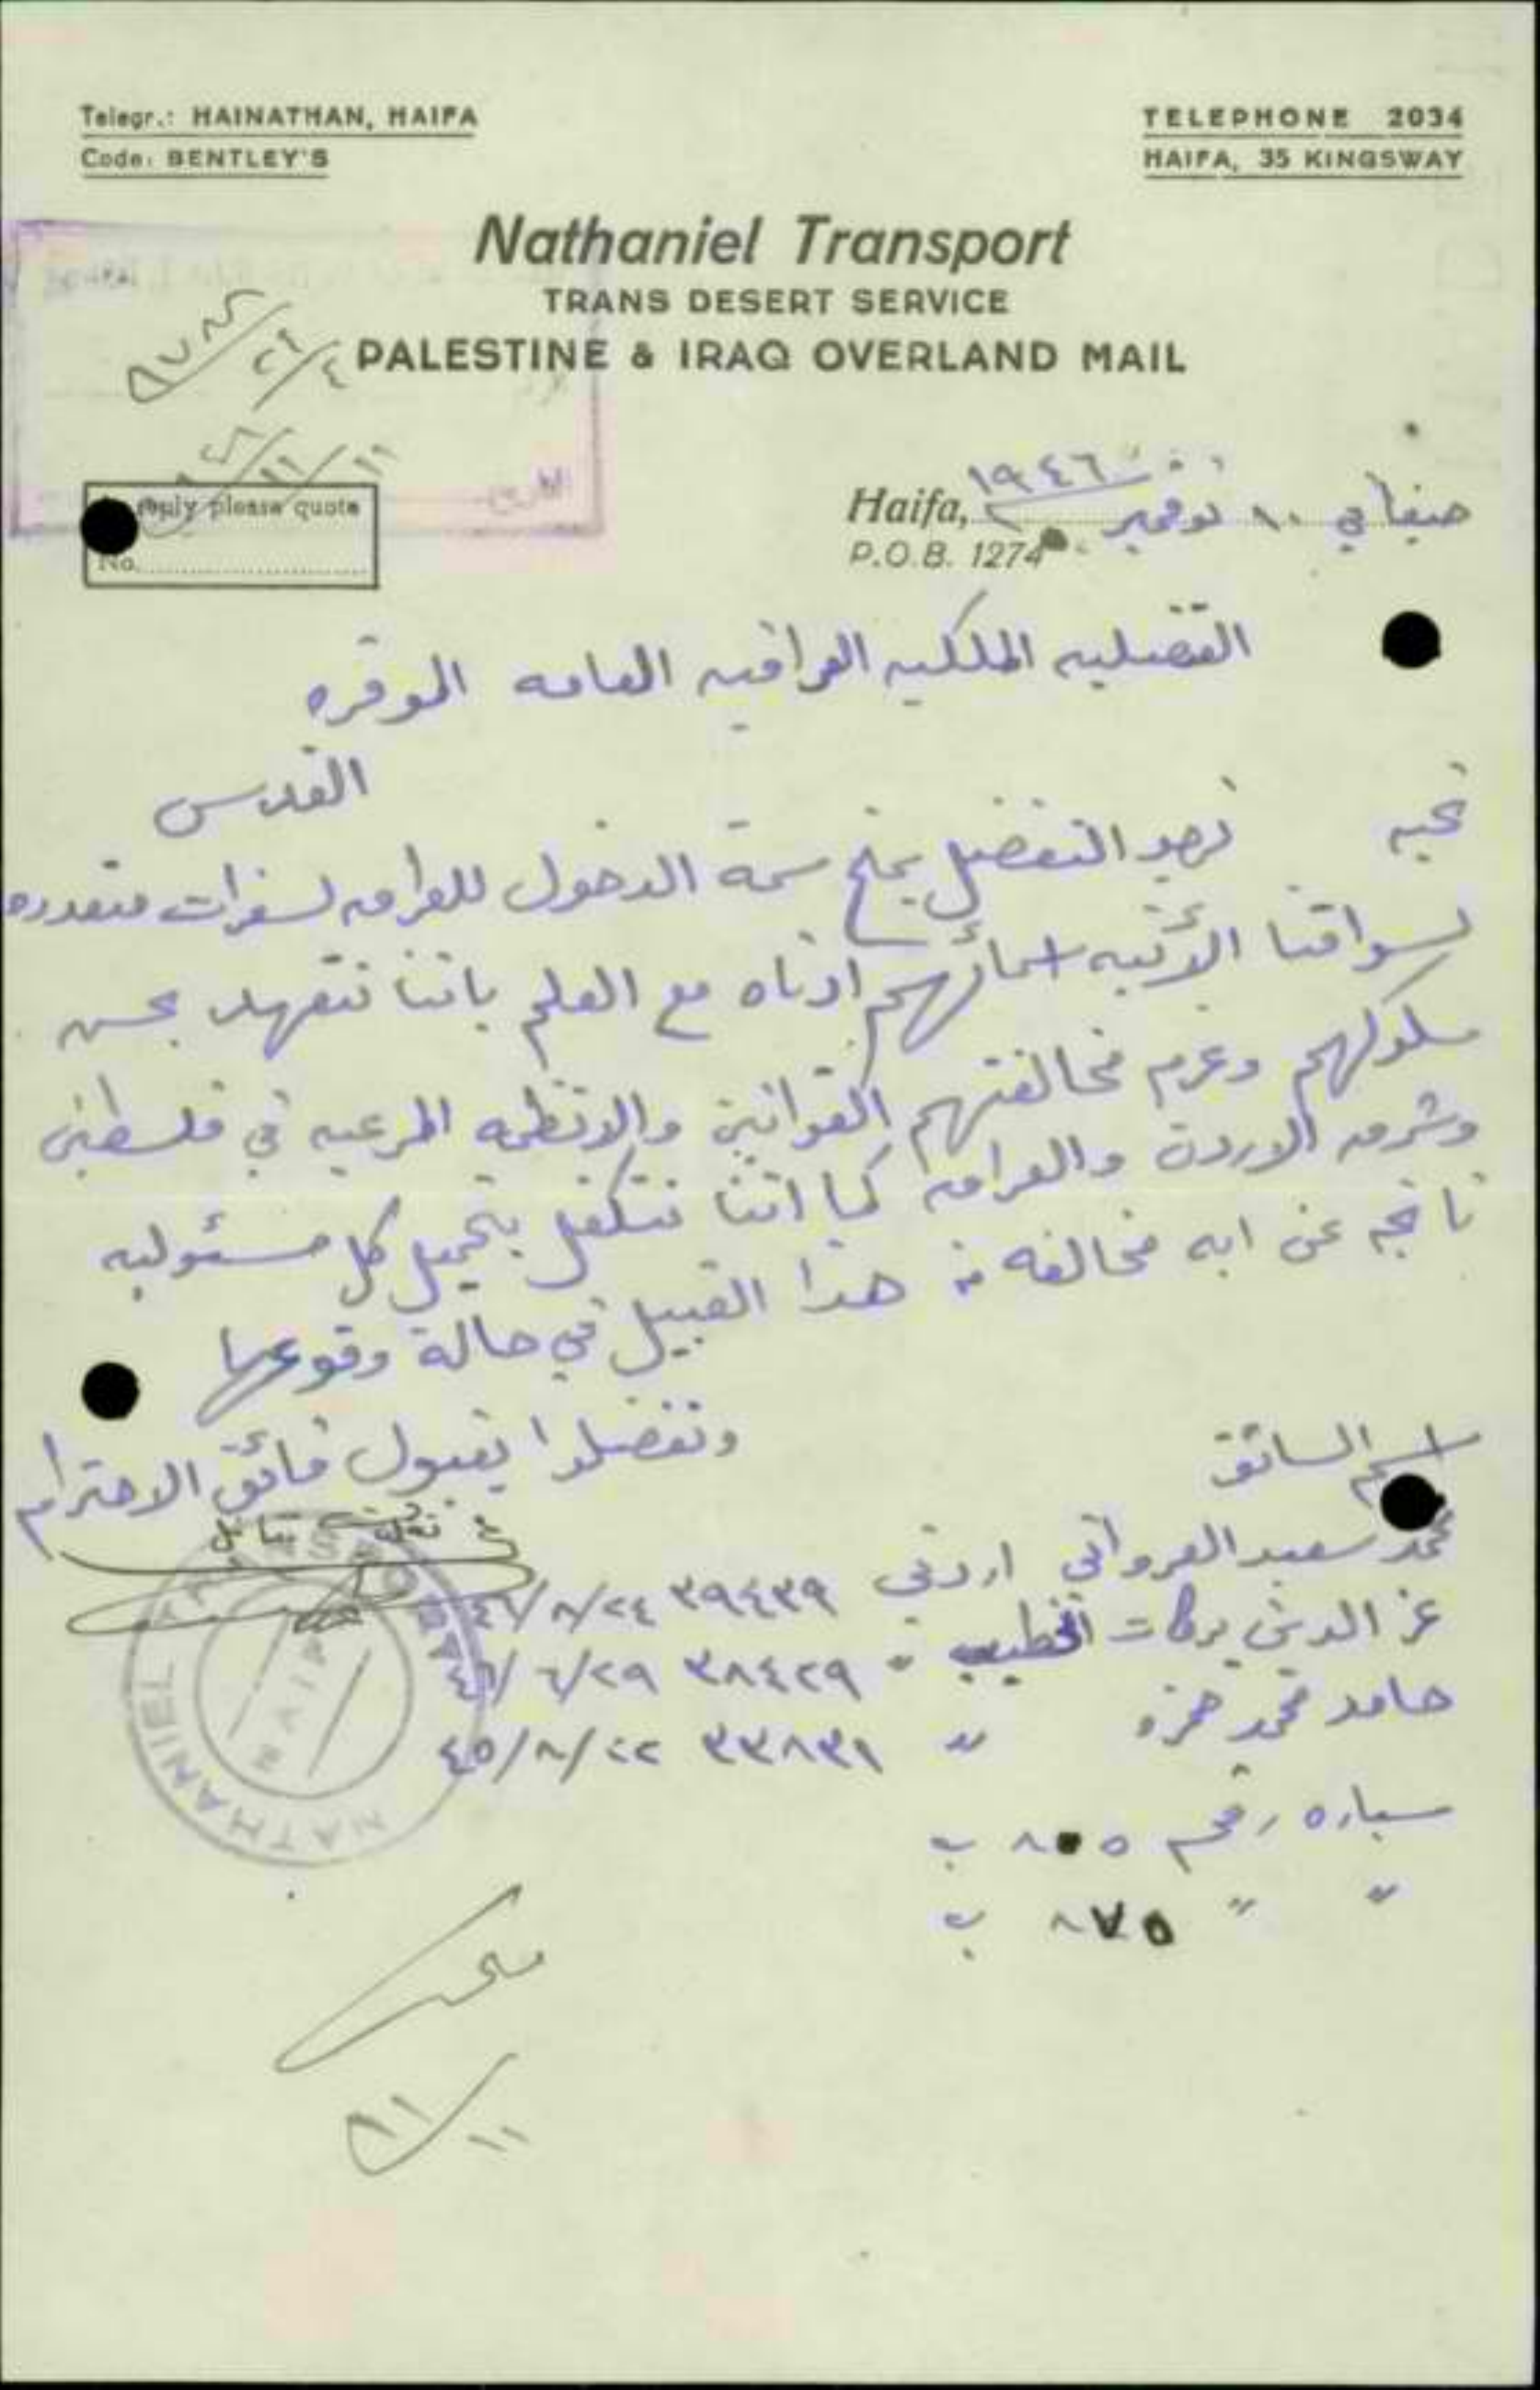 Telegr.: HAINATHAN, HAIFA
Code: BENTLEY'S
TELEPHONE 2034
HAIFA, 35 KINGSWAY
Nathaniel Transport
TRANS DESERT SERVICE
PALESTINE & IRAQ OVERLAND MAIL
reply please quote
No.
Haifa,
P.O.B. 1274
حيفا في ١٠ نوفمبر ١٩٤٦
القنصليه الملكيه العراقيه العامه الموقره
القدس
تحيه نرجو التفضل بمنح سمة الدخول للعراق لسفرات متعدده
لسواقنا الآتيه اسمائهم ادناه مع العلم باننا نتعهد بحسن
سلوكهم وعدم مخالفتهم القوانين والانظمه المرعيه في فلسطين
وشرق الاردن والعراق كما اننا نتكفل بتحميل كل مسئوليه
ناتجه عن ايه مخالفه من هذا القبيل في حالة وقوعها
وتفضلوا بقبول فائق الاحترام
اسم السائق
محمد سعيد العرواني اردني ٣٩٤٣٩ ٤٦/٨/٢٤
عز الدين بركات الخطيب " ٣٨٤٢٩ ٤٦/٦/٢٩
حامد محمد حمزه " ٣٣٨٣١ ٤٥/٨/٢٢
سياره رقم ٨٠٥ ب
" " ٨٧٥ ب
NATHANIEL TRANSPORT
HAIFA
١١/١١